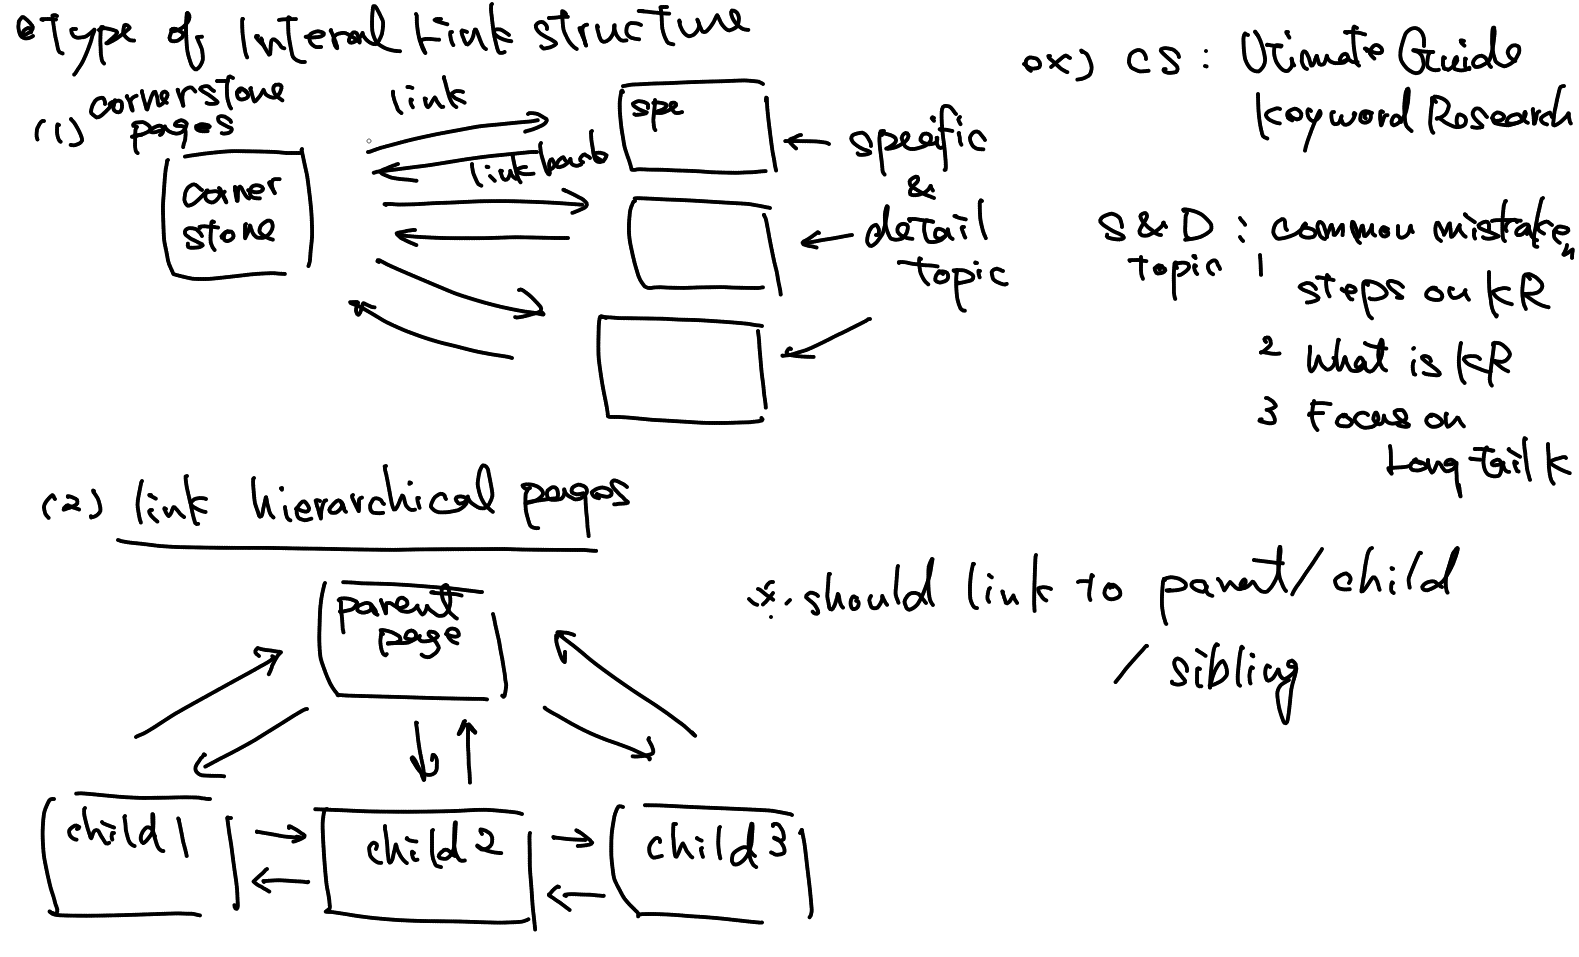 Type of Interal Link structure
(1) cornerstone
pages
corner
stone
link
link back
spe
specific
&
detail
topic
ex) CS : Utimate Guide
Keyword Research
S & D : common mistake
topic 1
steps on KR
2 What is KR
3 Focus on
Long-tail K
(2) link hierarchical pages
parent
page
child 1
child 2
child 3
※ should link to parent/child
/ sibling